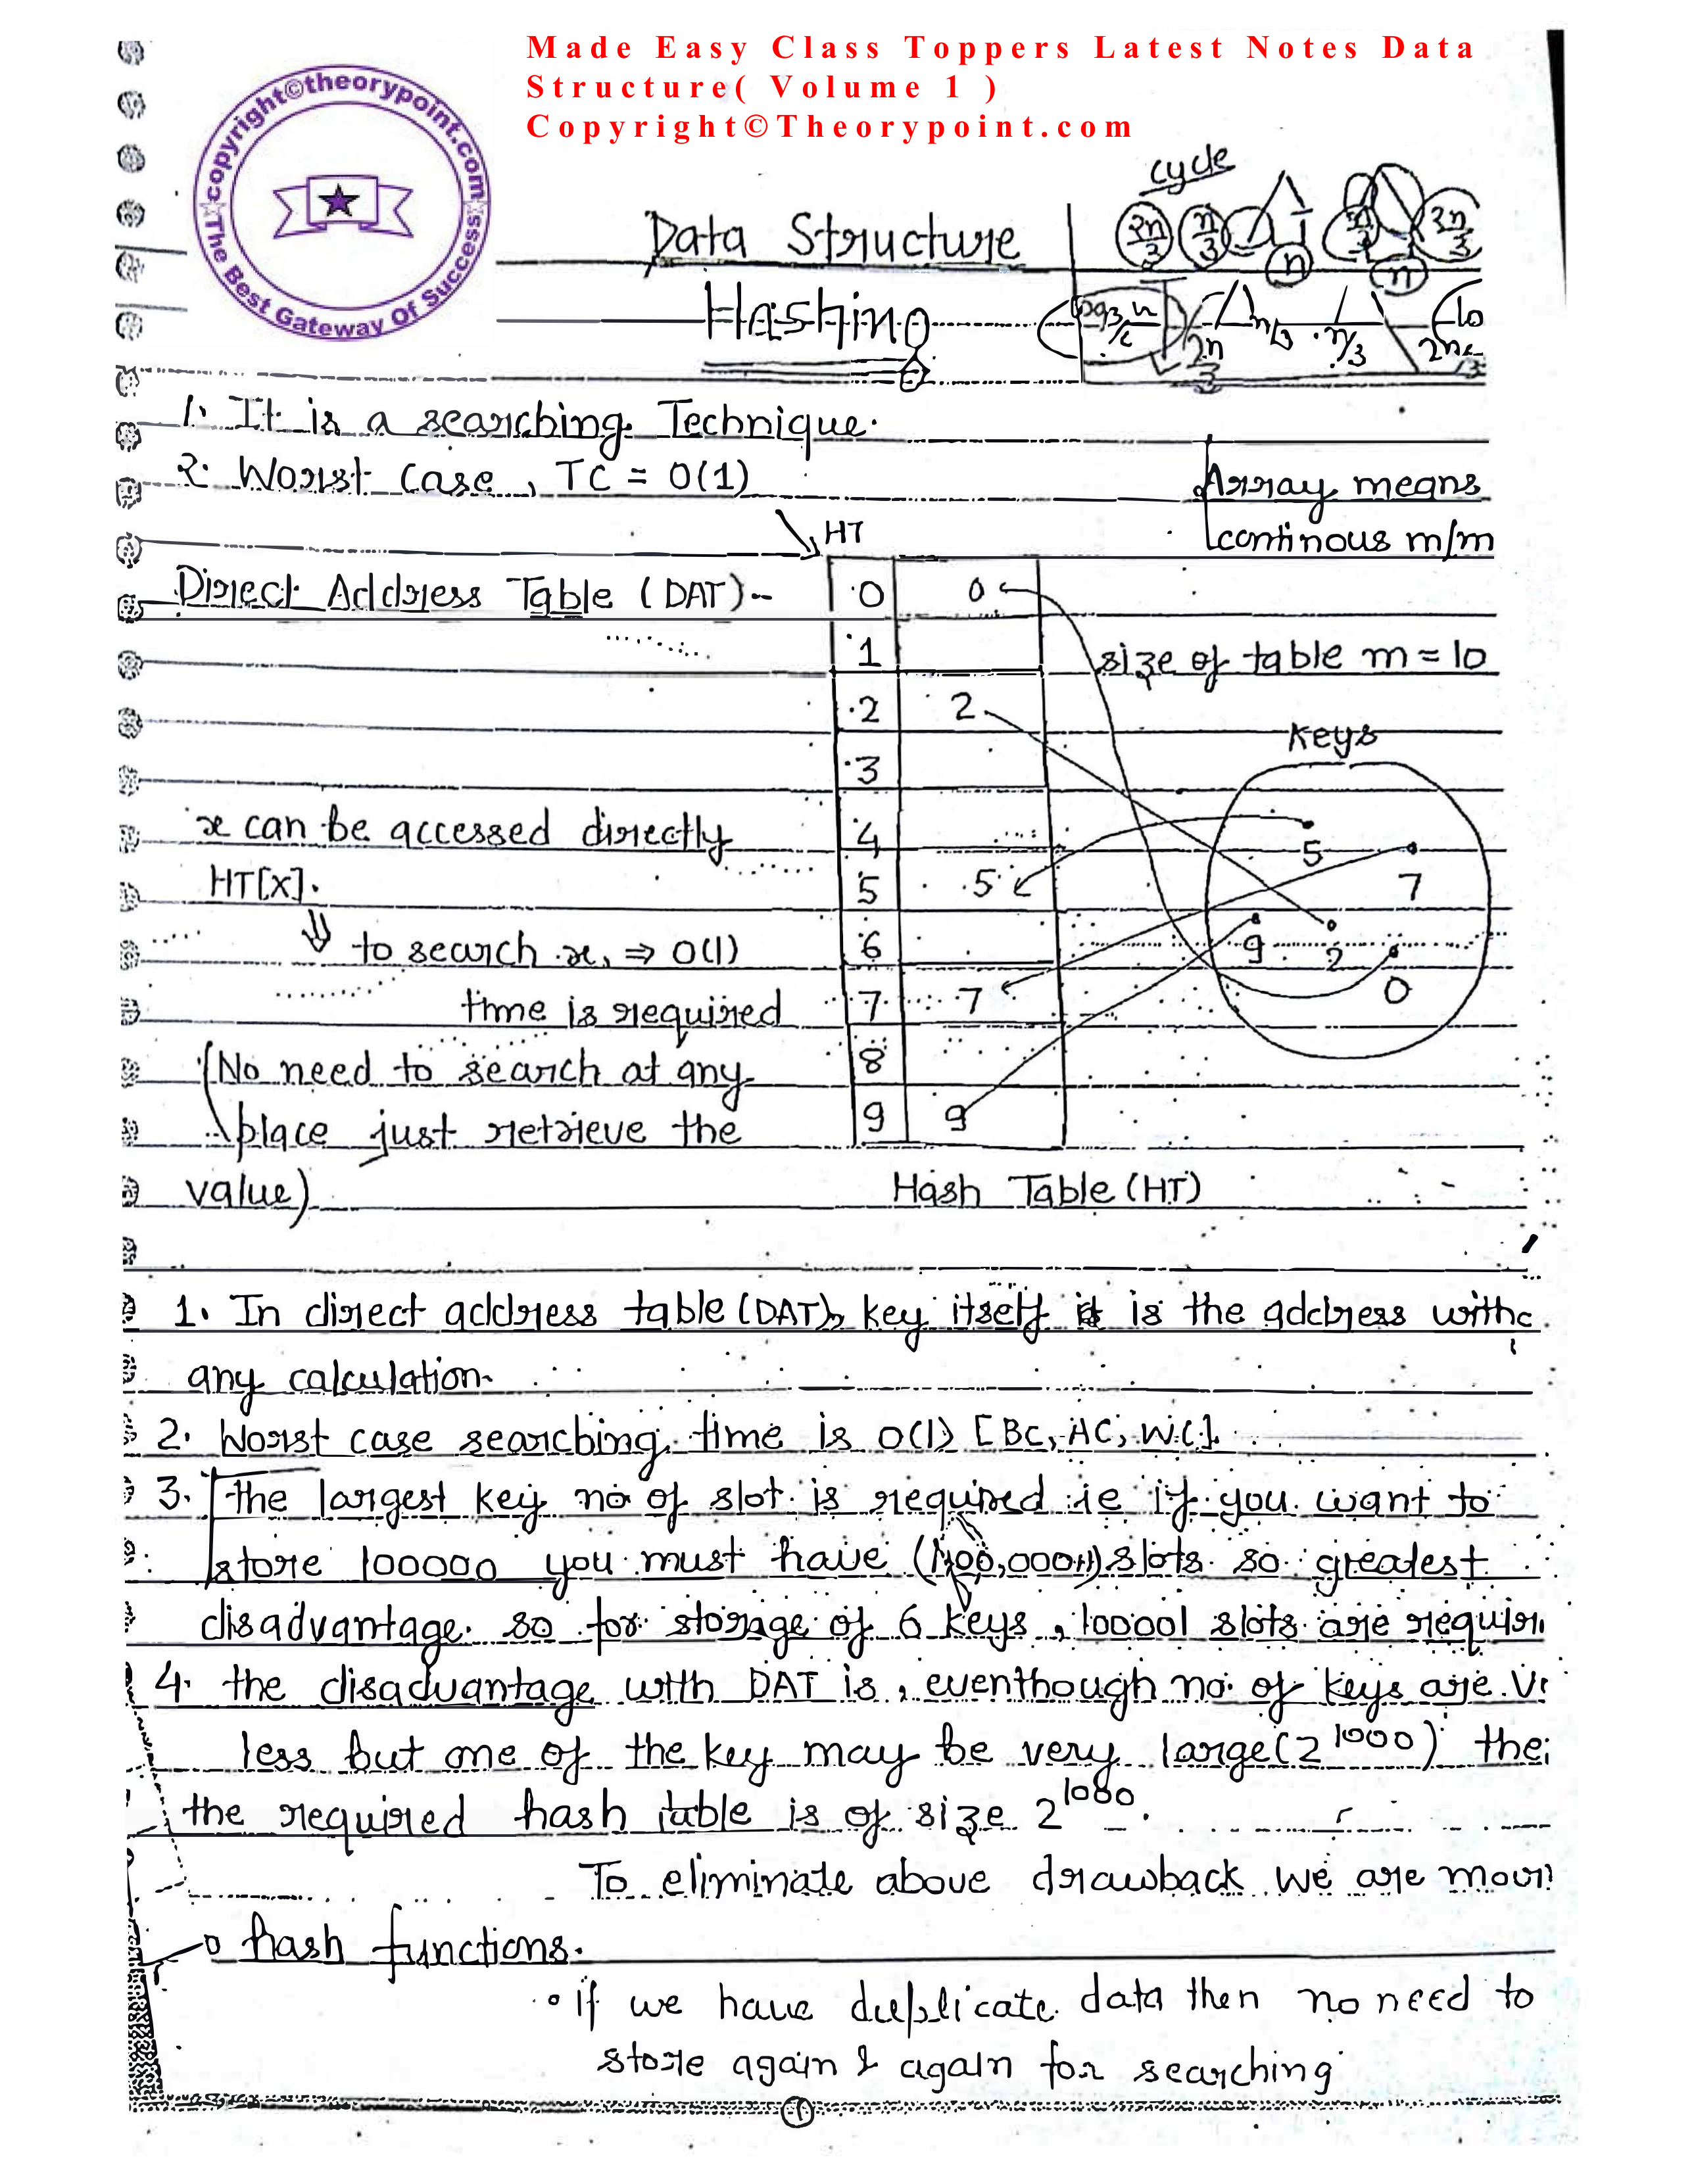 Made Easy Class Toppers Latest Notes Data
Structure( Volume 1 )
Copyright©Theorypoint.com
☆copyright©theorypoint.com☆
The Best Gateway Of Success
cycle
Data Structure
2n/3 n/3 n 2n/3 n
Hashing
2n/3 n/3 n/3
1. It is a searching Technique.
2. Worst case, TC = O(1)
Array means
continous m/m
HT
Direct Address Table (DAT)-
size of table m = 10
Keys
0 0
1
2 2
3
4
5 5
6
7 7
8
9 9
5
7
9
2
0
x can be accessed directly
HT[x].
⇓ to search x, ⇒ O(1)
time is required
(No need to search at any
place just retrieve the
value)
Hash Table (HT)
1. In direct address table (DAT), key itself is the address
any calculation.
2. Worst case searching time is O(1) [BC, AC, WC].
3. the largest key no of slot is required ie if you want to
store 100000 you must have (100,000+1) slots so greatest
disadvantage. so for storage of 6 keys, 100001 slots are
4. the disadvantage with DAT is, eventhough no. of keys are
less but one of the key may be very large (2^1000)
the required hash table is of size 2^1000.
To eliminate above drawback we are
hash functions.
• if we have duplicate data then no need to
store again & again for searching
1